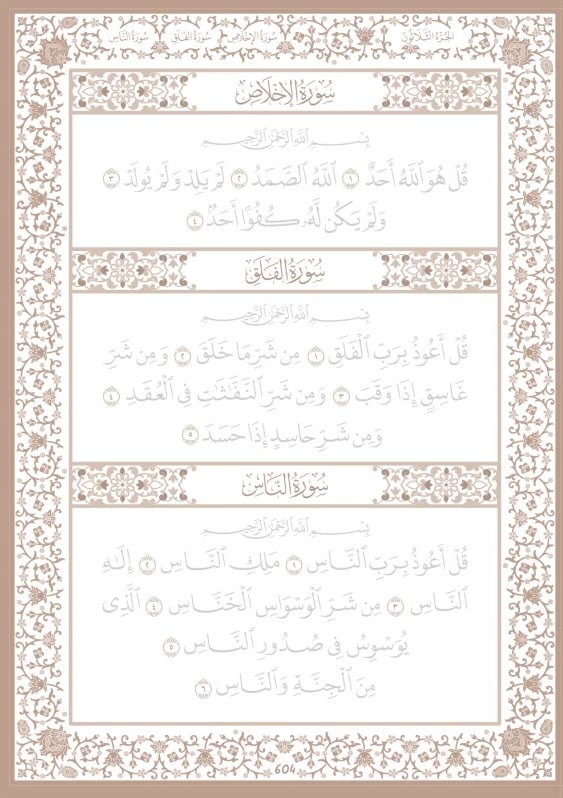 الجزء الثلاثون سورة الإخلاص سورة الفلق سورة الناس
سُورَةُ الإِخْلَاصِ
بِسْمِ ٱللَّهِ ٱلرَّحْمَٰنِ ٱلرَّحِيمِ
قُلْ هُوَ ٱللَّهُ أَحَدٌ ١ ٱللَّهُ ٱلصَّمَدُ ٢ لَمْ يَلِدْ وَلَمْ يُولَدْ ٣
وَلَمْ يَكُن لَّهُۥ كُفُوًا أَحَدٌۢ ٤
سُورَةُ الفَلَقِ
بِسْمِ ٱللَّهِ ٱلرَّحْمَٰنِ ٱلرَّحِيمِ
قُلْ أَعُوذُ بِرَبِّ ٱلْفَلَقِ ١ مِن شَرِّ مَا خَلَقَ ٢ وَمِن شَرِّ
غَاسِقٍ إِذَا وَقَبَ ٣ وَمِن شَرِّ ٱلنَّفَّٰثَٰتِ فِي ٱلْعُقَدِ ٤
وَمِن شَرِّ حَاسِدٍ إِذَا حَسَدَ ٥
سُورَةُ النَّاسِ
بِسْمِ ٱللَّهِ ٱلرَّحْمَٰنِ ٱلرَّحِيمِ
قُلْ أَعُوذُ بِرَبِّ ٱلنَّاسِ ١ مَلِكِ ٱلنَّاسِ ٢ إِلَٰهِ
ٱلنَّاسِ ٣ مِن شَرِّ ٱلْوَسْوَاسِ ٱلْخَنَّاسِ ٤ ٱلَّذِي
يُوَسْوِسُ فِي صُدُورِ ٱلنَّاسِ ٥
مِنَ ٱلْجِنَّةِ وَٱلنَّاسِ ٦
604